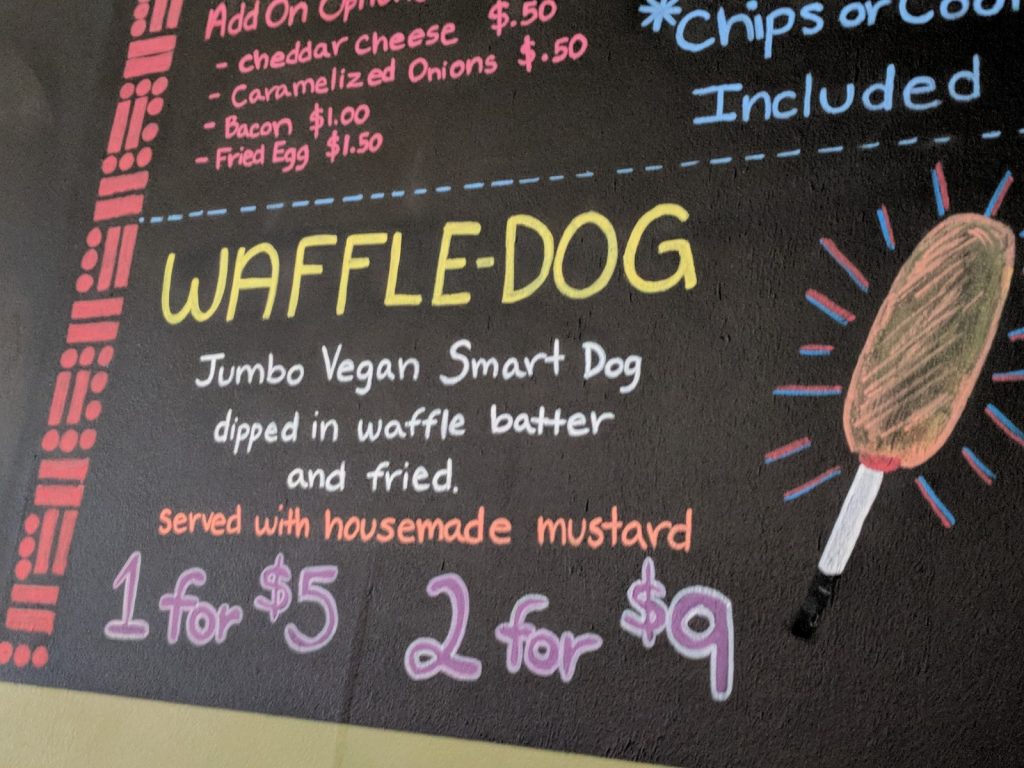 Add On
- cheddar cheese $.50
- Caramelized Onions $.50
- Bacon $1.00
- Fried Egg $1.50
*Chips or
Included
WAFFLE-DOG
Jumbo Vegan Smart Dog
dipped in waffle batter
and fried.
served with housemade mustard
1 for $5 2 for $9